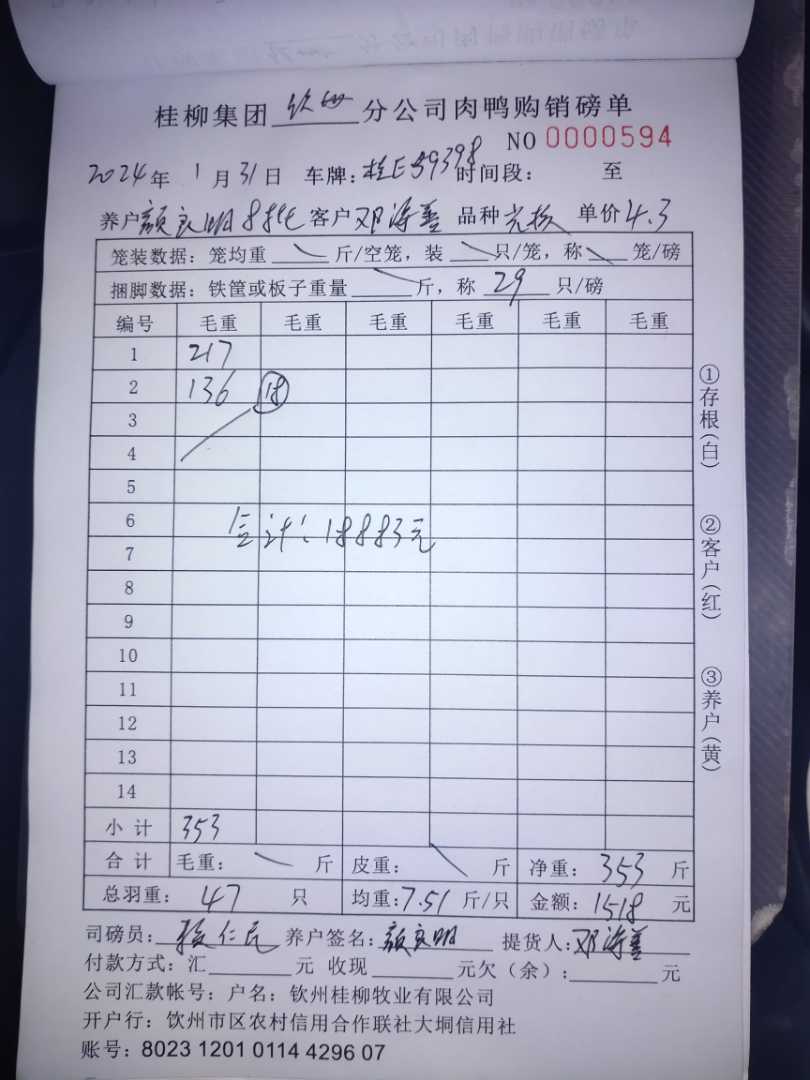 桂柳集团钦州分公司肉鸭购销磅单
NO 0000594
2024年 1月31日 车牌:桂E59398 时间段: 至
养户颜良明8批 客户邓海善 品种 单价4.3
笼装数据: 笼均重 斤/空笼, 装 只/笼, 称 笼/磅
捆脚数据: 铁筐或板子重量 斤, 称 29 只/磅
编号 毛重 毛重 毛重 毛重 毛重 毛重
1 217
2 136 18
3
4
5
6
合计:18883元
7
8
9
10
11
12
13
14
小计 353
合计 毛重: 斤 皮重: 斤 净重: 353 斤
总羽重: 47 只 均重:7.51 斤/只 金额: 1518 元
司磅员: 仁民 养户签名:颜良明 提货人:邓海善
付款方式: 汇 元 收现 元欠(余): 元
公司汇款帐号: 户名: 钦州桂柳牧业有限公司
开户行: 饮州市区农村信用合作联社大垌信用社
账号: 8023 1201 0114 4296 07
①存根(白)
②客户(红)
③养户(黄)